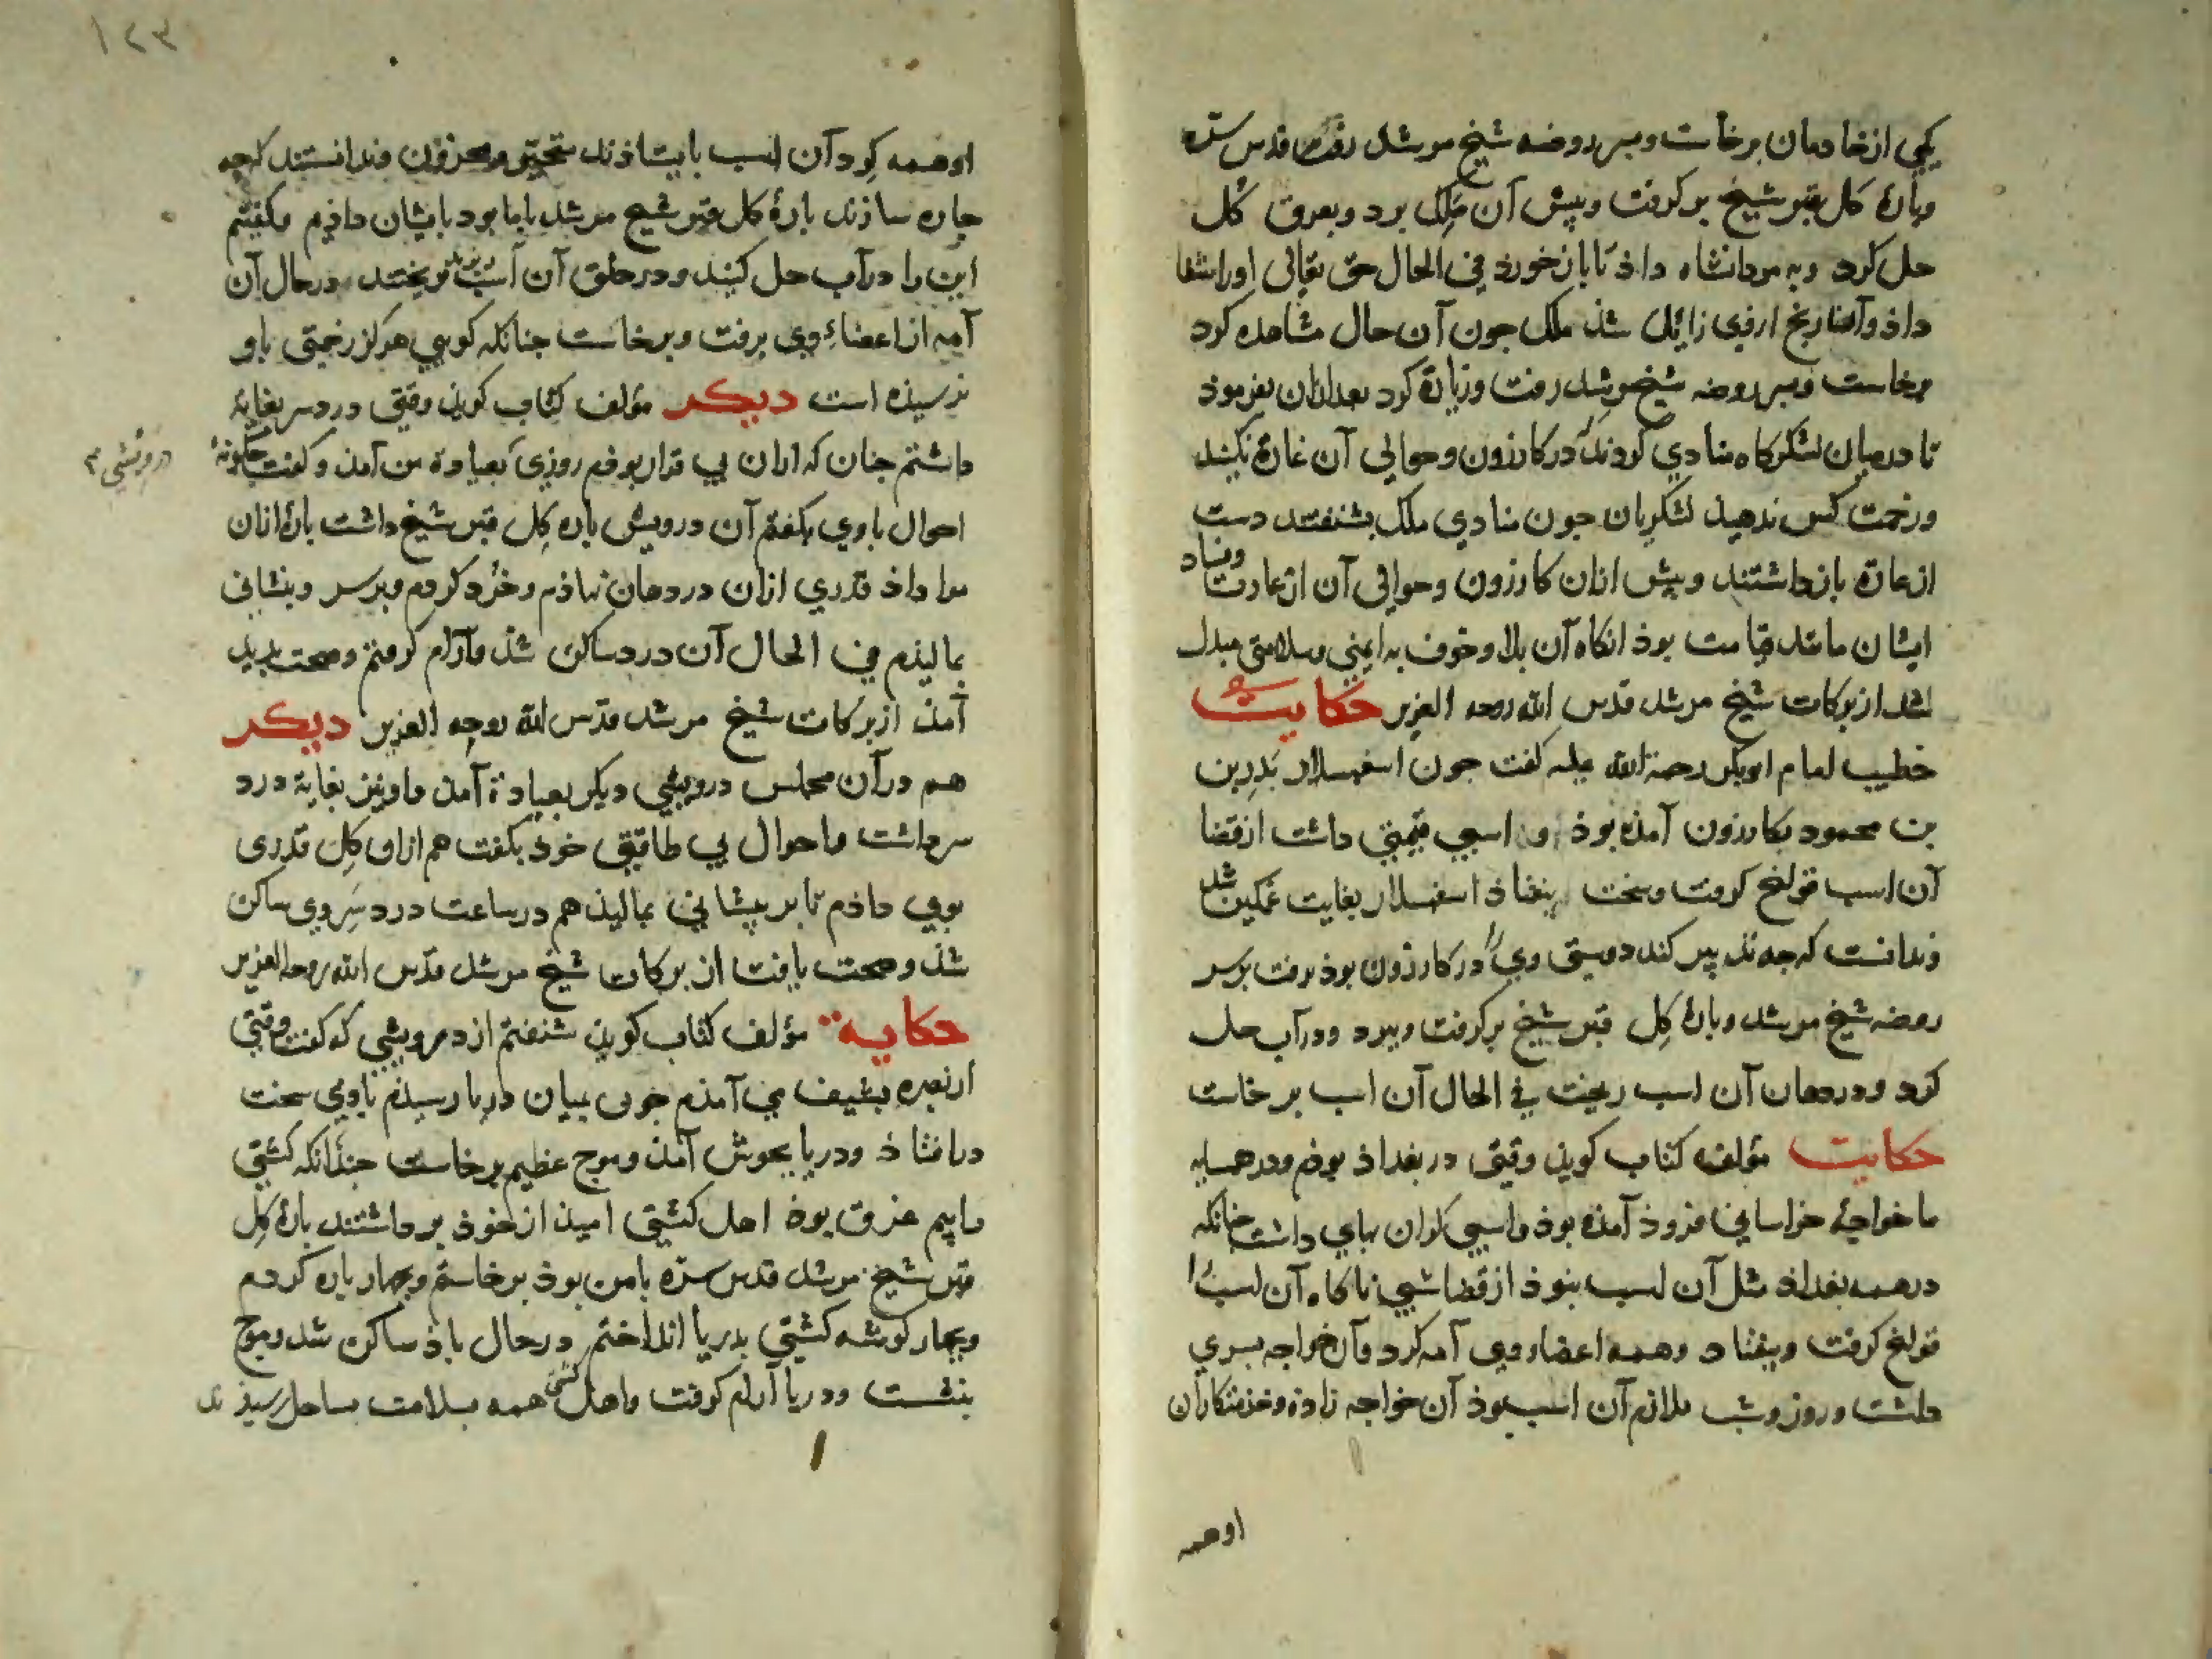 یکی از خادمان برخاست و بسر روضه شیخ مرشد رفت قدس سره
و پارهٔ کل قبر شیخ بر کرفت و پیش آن ملک برد و بعرق کل
حل کرد و به مردانشاه داذ تا بازخورد فی الحال حق تعالی او را شفا
داذ و آن رنج از وی زائل شذ ملک جون آن حال مشاهده کرد
برخاست و بسر روضه شیخ مرشد رفت و زیارة کرد بعد ازان بفرموذ
تا در میان لشکرکاه منادی کردند که در کازرون و حوالی آن غارة نکنند
و زحمت کس ندهید لشکریان جون منادی ملک بشنفتند دست
از غارة بازداشتند و پیش ازان کازرون و حوالی آن از غارت و فساد
ایشان مانند قیامت بوذ انکاه آن بلا و خوف به ایمنی و سلامتی مبدل
شد از برکات شیخ مرشد قدس الله روحه العزیز حکایت
خطیب امام ابوبکر رحمة الله علیه کفت جون اسفهسلار بدر بن
بن محمود بکازرون آمذه بوذ اسبی قیمتی داشت از قضا
آن اسب قولنج کرفت و سخت بیفتاذ اسفهسلار بغایت غمکین شد
و ندانست که جه تدبیر کند دوستی ویرا در کازرون بوذ برفت بر سر
روضه شیخ مرشد و پارهٔ کِل قبر شیخ بر کرفت و ببرد و در آب حل
کرد و در دهان آن اسب ریخت فی الحال آن اسب بر خاست
حکایت مؤلف کتاب کویذ وقتی در بغداذ بوذم و در همسایه
ما خواجهٔ خراسانی فروذ آمذه بوذ و اسبی کران بهای داشت جنانکه
در همه بغداذ مثل آن اسب نبوذ از قضا شبی ناکاه آن اسب را
قولنج کرفت و بیفتاد و همه اعضاء وی آمه کرد و آن خواجه پسری
داشت و روز و شب ملازم آن اسب بوذ آن خواجه زاده و خذمتکاران
اوهمه
١٢٣
او همه کرد آن اسب بایستاذند متحیر و محزون و ندانستند که جه
جاره سازند پارهٔ کل قبر شیخ مرشد با ما بود بایشان داذیم و کفتیم
این را در آب حل کنید و در حلق آن اسب ریزید بریختند در حال آن
آمه از اعضاءِ وی برفت و برخاست جنانکه کویی هرکز زحمتی باو
نرسیذه است دیکر مؤلف کتاب کویذ وقتی درد سر بغایة
داشتم جنان که ازان بی قرار بوذم روزی بعیادة من آمذ و کفت جکونهٔ
درویشی
احوال با وی بکفتم آن درویش پاره کِل قبر شیخ داشت پارهٔ ازان
مرا داذ قدری ازان در دهان نهاذم و خرد کردم و بر سر و پیشانی
بمالیذم فی الحال آن درد ساکن شذ و آرام کرفتم و صحت پدید
آمذ از برکات شیخ مرشد قدس الله روحه العزیز دیکر
هم در آن مجلس درویشی دیکر بعیادة آمذ و او نیز بغایة درد
سر داشت و احوال بی طاقتی خوذ بکفت هم ازان کِل قدری
بوی داذم تا بر پیشانی بمالیذ هم در ساعت درد سر وی ساکن
شذ و صحت یافت از برکات شیخ مرشد قدس الله روحه العزیز
حکایة مؤلف کتاب کویذ شنفتم از درویشی که کفت وقتی
از بصره می آمذم جون بمیان دریا رسیذم باذی سخت
در افتاذ و دریا بجوش آمذ و موج عظیم برخاست جندانکه کشتی
را بیم غرق بوذ اهل کشتی امیذ از خوذ برداشتند پارهٔ کِل
قبر شیخ مرشد قدس سره با من بوذ برخاستم و بجهار پاره کردم
و بجهار کوشه کشتی بدریا انداختم در حال باذ ساکن شد و موج
بنشست و دریا آرام کرفت و اهل کشتی همه بسلامت بساحل رسیذند